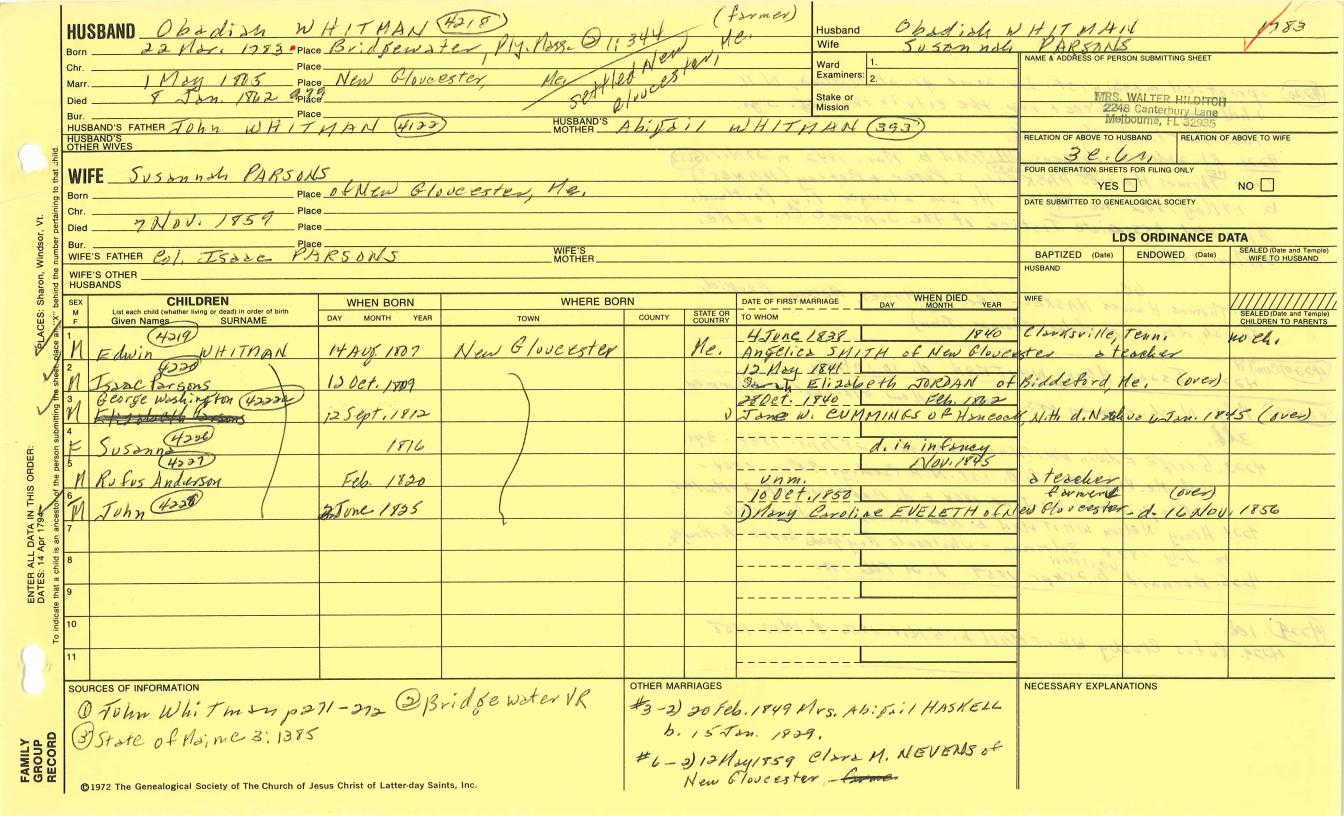 HUSBAND Obadiah WHITMAN 4218 (farmer)
Born 22 Mar. 1783 Place Bridgewater, Ply. Mass. @ 11:344
Chr. Place
Marr. 1 May 1805 Place New Gloucester, Me.
settled New Gloucester, Me.
Died 8 Jan. 1862 Place
Bur. Place
HUSBAND'S FATHER John WHITMAN 4122 HUSBAND'S MOTHER Abigail WHITMAN 393
HUSBAND'S OTHER WIVES
Husband Obadiah WHITMAN 1783
Wife Susannah PARSONS
Ward Examiners: 1.
2.
Stake or Mission
NAME & ADDRESS OF PERSON SUBMITTING SHEET
MRS. WALTER HILDITCH
2248 Canterbury Lane
Melbourne, FL 32935
RELATION OF ABOVE TO HUSBAND RELATION OF ABOVE TO WIFE
FOUR GENERATION SHEETS FOR FILING ONLY
YES NO
DATE SUBMITTED TO GENEALOGICAL SOCIETY
WIFE Susannah PARSONS
Born Place of New Gloucester, Me.
Chr. Place
Died 7 Nov. 1859 Place
Bur. Place
WIFE'S FATHER Col. Isaac PARSONS WIFE'S MOTHER
WIFE'S OTHER HUSBANDS
LDS ORDINANCE DATA
BAPTIZED (Date) ENDOWED (Date) SEALED (Date and Temple) WIFE TO HUSBAND
HUSBAND
WIFE
SEALED (Date and Temple) CHILDREN TO PARENTS
SEX M F CHILDREN WHEN BORN WHERE BORN DATE OF FIRST MARRIAGE WHEN DIED
List each child (whether living or dead) in order of birth
Given Names SURNAME DAY MONTH YEAR TOWN COUNTY STATE OR COUNTRY TO WHOM DAY MONTH YEAR
1 4219 4 June 1838 1840 Clarksville, Tenn. no ch.
M Edwin WHITMAN 14 Aug 1807 New Gloucester Me. Angelica SMITH of New Gloucester a teacher
2 4220 12 May 1841
M Isaac Parsons 12 Oct. 1809 Sarah Elizabeth JORDAN of Biddeford, Me. (over)
3 George Washington 28 Oct. 1840 Feb. 1862
M Elizabeth Parsons 12 Sept. 1812 Jane W. CUMMINGS of Hancock, N.H. d. 4 Jan. 1845 (over)
4 4226
F Susanna 1816 d. in infancy
5 4227 Nov. 1845
M Rufus Anderson Feb. 1820 unm. a teacher
6 4228 10 Oct. 1850 farmer (over)
M John 2 June 1825 1) Mary Caroline EVELETH of New Gloucester - d. 16 Nov. 1856
7
8
9
10
11
SOURCES OF INFORMATION
① John Whitman p271-272 ② Bridgewater VR
③ State of Maine 3:1385
OTHER MARRIAGES
#3-2) 20 Feb. 1849 Mrs. Abigail HASKELL
b. 15 Jan. 1829.
#6-2) 12 May 1859 Clara M. NEVENS of
New Gloucester
NECESSARY EXPLANATIONS
©1972 The Genealogical Society of The Church of Jesus Christ of Latter-day Saints, Inc.
FAMILY GROUP RECORD
ENTER ALL DATA IN THIS ORDER:
DATES: 14 Apr 1794
PLACES: Sharon, Windsor, Vt.
To indicate that a child is an ancestor of the person submitting the sheet, place an "X" behind the number pertaining to that child.